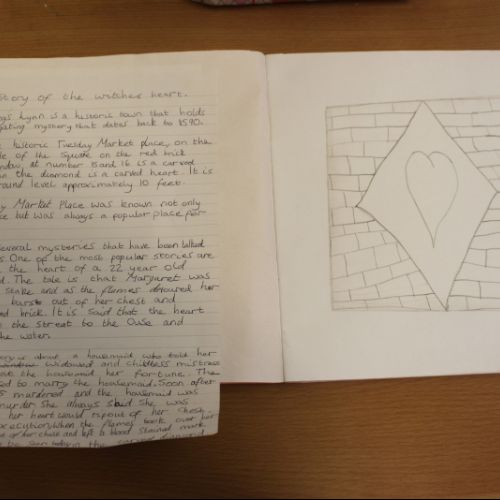 story of the witches heart.
ngs Lynn is a historic town that holds
mystery that dates back to 1590.
historic Tuesday Market place, on the
of the Square on the red brick
ndow, at number 15 and 16 is a carved
in the diamond is a carved heart. It is
round level approximately 10 feet.
y Market Place was known not only
but was always a popular place for
several mysteries that have been talked
One of the most popular stories are
the heart of a 22 year old
The tale is that Margaret was
stake and as the flames devoured her
burst out of her chest and
brick. It is said that the heart
the street to the Ouse and
the water.
about a housemaid who told her
widowed and childless mistress
the housemaid her fortune. The
ed to marry the housemaid. Soon after
s murdered and the housemaid was
murder She always said she was
her heart would ripout of her chest
execution, when the flames took over her
her chest and left a blood stained mark
be seen today in the carved diamond